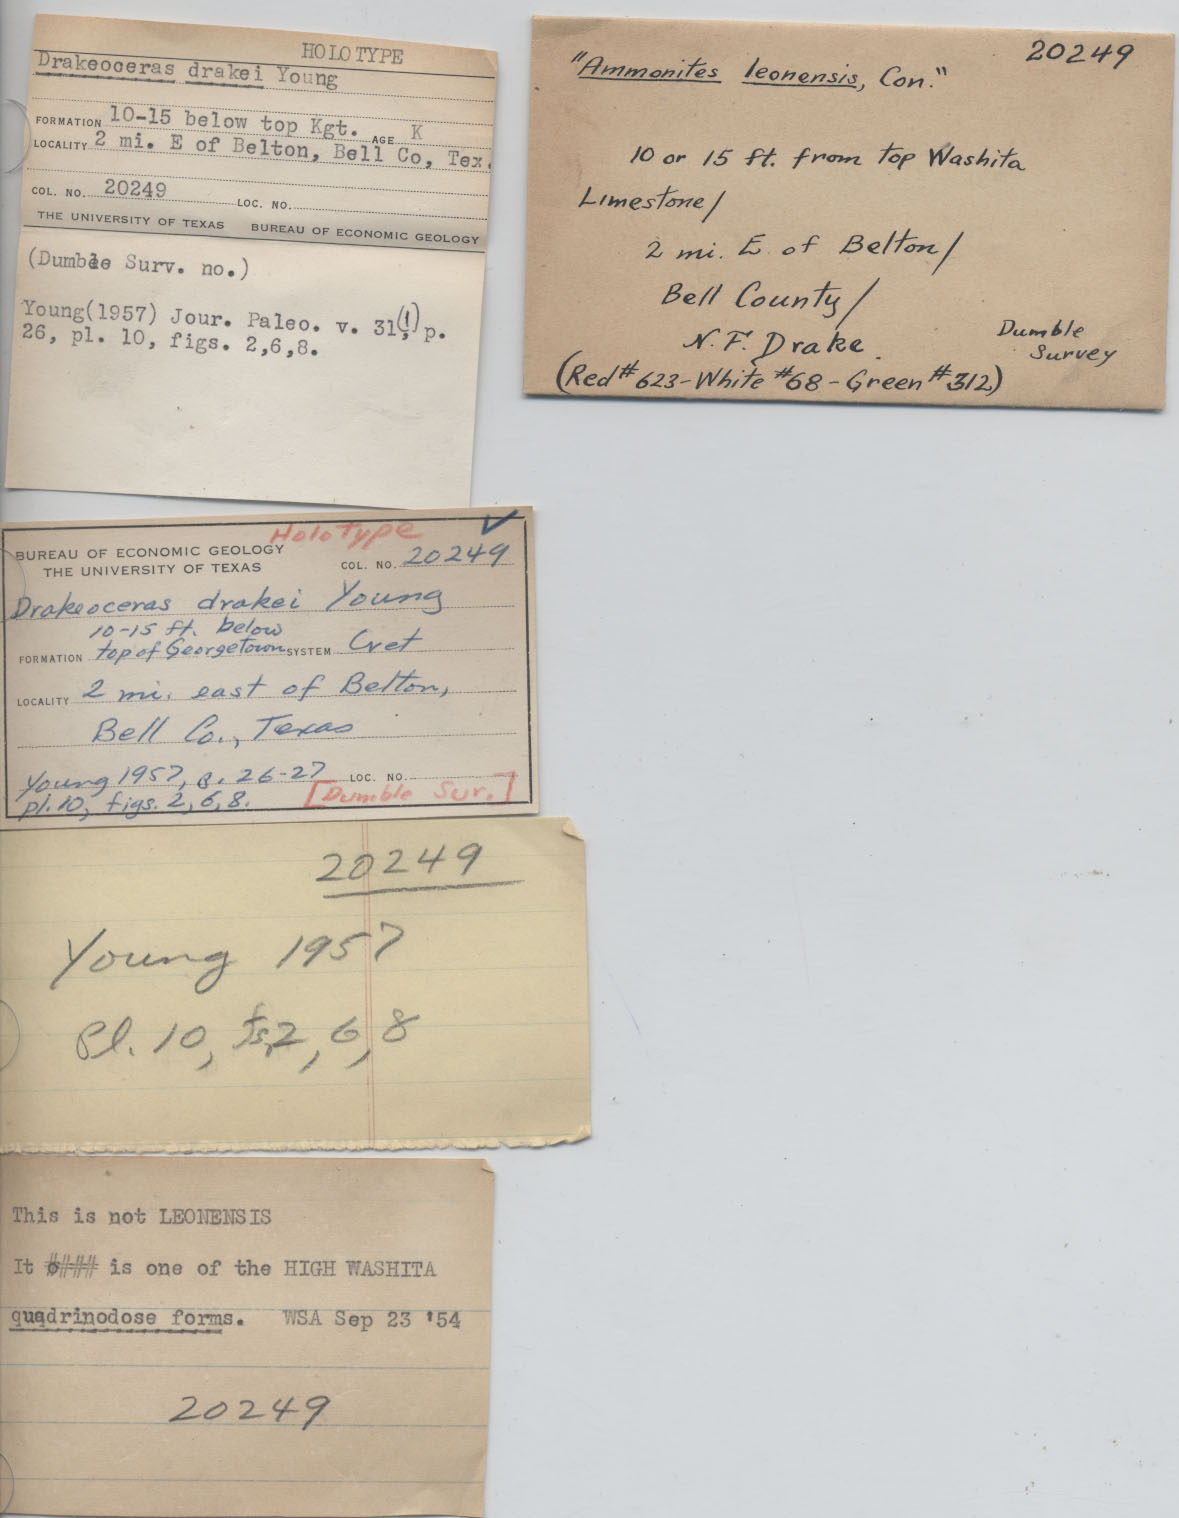 HOLOTYPE
Drakeoceras drakei Young
FORMATION 10-15 below top Kgt. AGE K
LOCALITY 2 mi. E of Belton, Bell Co, Tex.
COL. NO. 20249 LOC. NO.
THE UNIVERSITY OF TEXAS BUREAU OF ECONOMIC GEOLOGY
(Dumble Surv. no.)
Young(1957) Jour. Paleo. v. 31(1) p.
26, pl. 10, figs. 2,6,8.
20249
"Ammonites leonensis, Con."
10 or 15 ft. from top Washita
Limestone/
2 mi. E of Belton/
Bell County/
N. F. Drake.
Dumble
Survey
(Red # 623-White #68-Green #312)
Holotype
BUREAU OF ECONOMIC GEOLOGY
THE UNIVERSITY OF TEXAS
COL. NO. 20249
Drakeoceras drakei Young
10-15 ft. below
FORMATION top of Georgetown SYSTEM Cret
LOCALITY 2 mi. east of Belton,
Bell Co., Texas
Young 1957, p. 26-27 LOC. NO.
pl. 10, figs. 2, 6, 8. [Dumble Sur.]
20249
Young 1957
Pl. 10, fs, 2, 6, 8
This is not LEONENSIS
It is one of the HIGH WASHITA
quadrinodose forms. WSA Sep 23 '54
20249